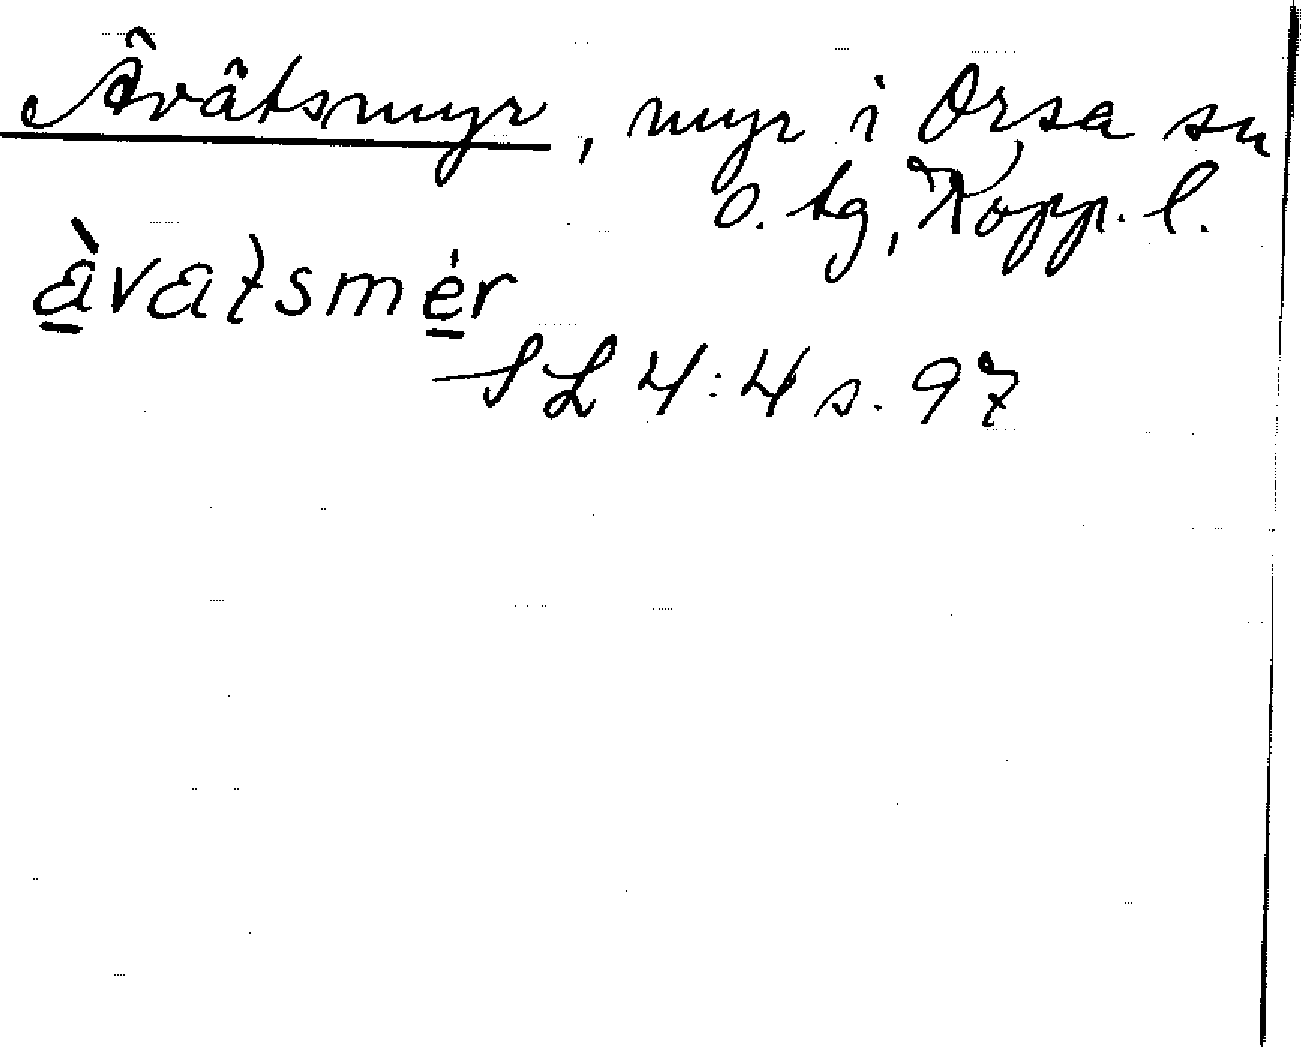 Âvâtsmyr, myr i Orsa sn
o. tg, Kopp. l.
àvatsmer
SL 4:4 s. 97